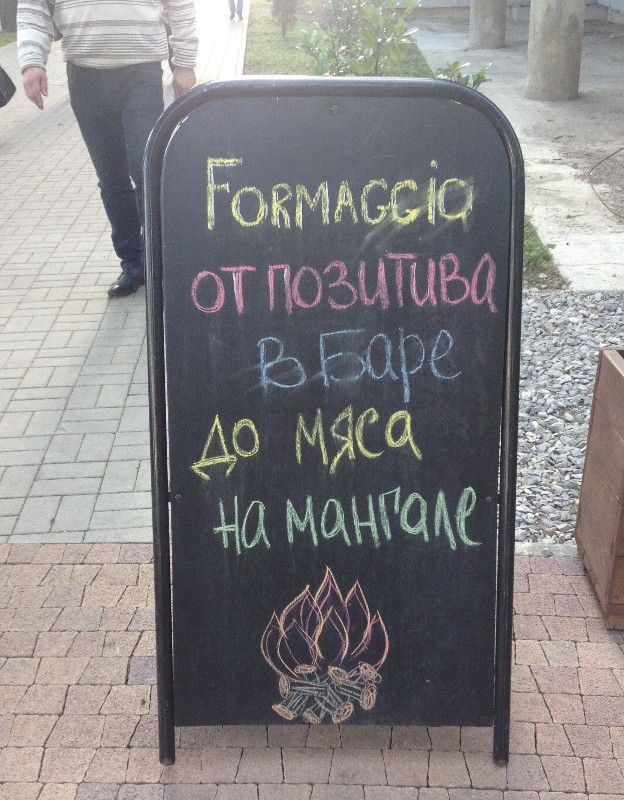 FORMAGGIO
от позитива
в Баре
до мяса
на мангале